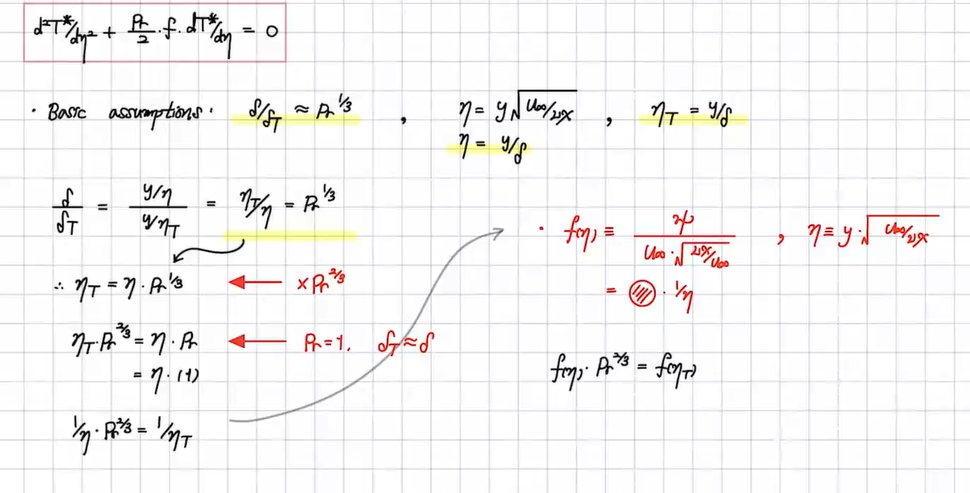 d²T*/dη² + Pr/2 · f · dT*/dη = 0
· Basic assumptions · δ/δT ≈ Pr^1/3 , η = y√(u∞/νx) , ηT = y/δ
η = y/δ
δ/δT = (y/η)/(y/ηT) = ηT/η = Pr^1/3
∴ ηT = η · Pr^1/3 ← × Pr^2/3
ηT · Pr^2/3 = η · Pr ← Pr = 1, δT ≈ δ
= η · (1)
1/η · Pr^2/3 = 1/ηT
· f(η) ≡ ψ/(u∞ · √(νx/u∞)) , η ≡ y · √(u∞/νx)
= · 1/η
f(η) · Pr^2/3 = f(ηT)